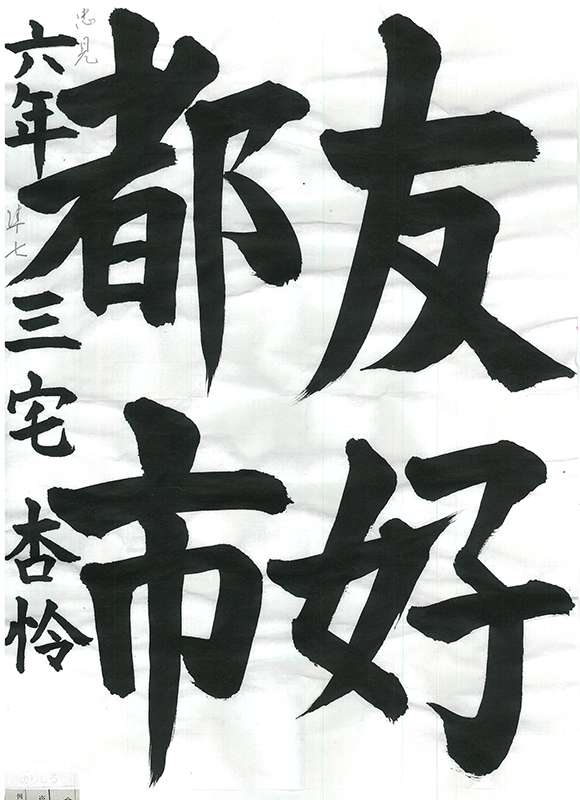 友好
都市
六年 三宅 杏怜
忠見
準七
のりしろ